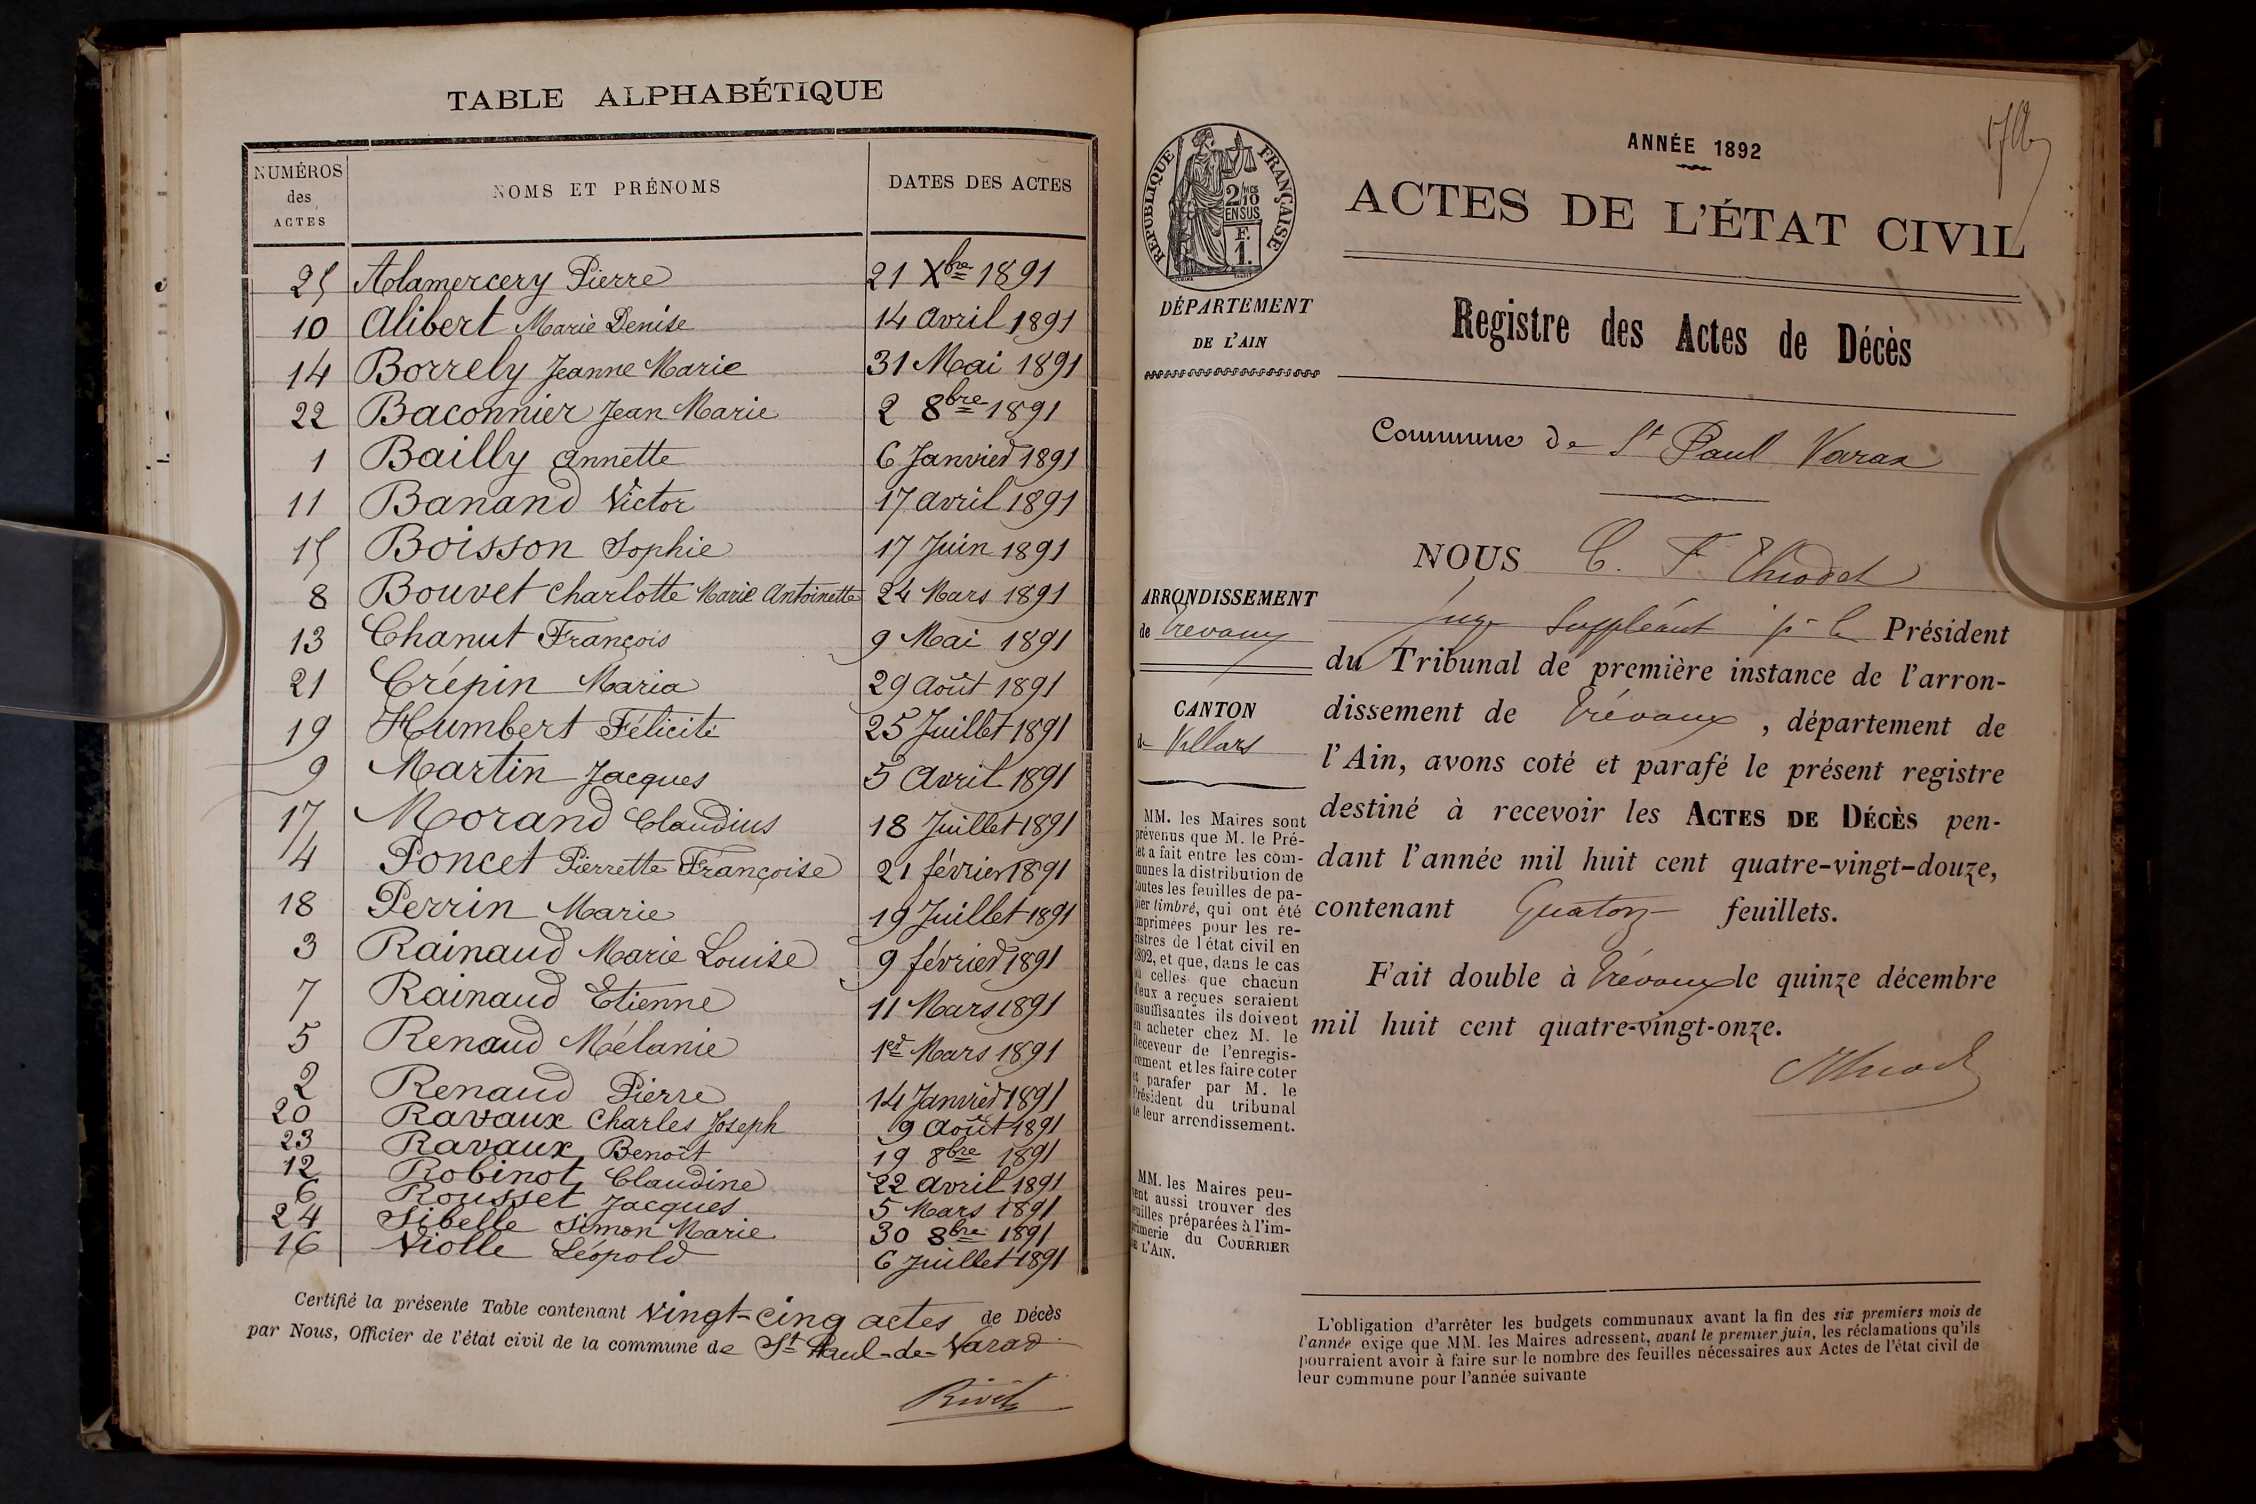 TABLE ALPHABÉTIQUE
NUMÉROS des ACTES | NOMS ET PRÉNOMS | DATES DES ACTES
25 Adamercery Pierre 21 Xbre 1891
10 Alibert Marie Denise 14 avril 1891
14 Borrely Jeanne Marie 31 Mai 1891
22 Baconnier Jean Marie 2 8bre 1891
1 Bailly annette 6 Janvier 1891
11 Banand Victor 17 avril 1891
15 Boisson Sophie 17 Juin 1891
8 Bouvet Charlotte Marie Antoinette 24 Mars 1891
13 Chanut François 9 Mai 1891
21 Crépin Maria 29 Août 1891
19 Humbert Félicité 25 Juillet 1891
9 Martin Jacques 5 Avril 1891
17 Morand Claudius 18 Juillet 1891
4 Poncet Pierrette Françoise 21 février 1891
18 Perrin Marie 19 Juillet 1891
3 Rainaud Marie Louise 9 février 1891
7 Rainaud Etienne 11 Mars 1891
5 Renaud Mélanie 1er Mars 1891
2 Renaud Pierre 14 Janvier 1891
20 Ravaux Charles Joseph 9 Août 1891
23 Ravaux Benoît 19 8bre 1891
12 Robinot Claudine 22 avril 1891
6 Rousset Jacques 5 Mars 1891
24 Sibelle Simon Marie 30 8bre 1891
16 Violle Léopold 6 Juillet 1891
Certifié la présente Table contenant Vingt-cinq actes de Décès
par Nous, Officier de l'état civil de la commune de St Paul-de-Varax
RÉPUBLIQUE FRANÇAISE
2/10 MES
EN SUS
F.
1.
DÉPARTEMENT
DE L'AIN
ARRONDISSEMENT
de Trévoux
CANTON
de Villars
MM. les Maires sont
prévenus que M. le Pré-
fet a fait entre les com-
munes la distribution de
toutes les feuilles de pa-
pier timbré, qui ont été
imprimées pour les re-
gistres de l'état civil en
1892, et que, dans le cas
où celles que chacun
d'eux a reçues seraient
insuffisantes ils doivent
en acheter chez M. le
Receveur de l'enregis-
trement et les faire coter
et parafer par M. le
Président du tribunal
de leur arrondissement.
MM. les Maires peu-
vent aussi trouver des
feuilles préparées à l'im-
primerie du COURRIER
DE L'AIN.
ANNÉE 1892
ACTES DE L'ÉTAT CIVIL
Registre des Actes de Décès
Commune de St Paul Varax
NOUS C. F. Thiodet
Juge Suppléant pr le Président
du Tribunal de première instance de l'arron-
dissement de Trévoux, département de
l'Ain, avons coté et parafé le présent registre
destiné à recevoir les ACTES DE DÉCÈS pen-
dant l'année mil huit cent quatre-vingt-douze,
contenant Quatorze feuillets.
Fait double à Trévoux le quinze décembre
mil huit cent quatre-vingt-onze.
L'obligation d'arrêter les budgets communaux avant la fin des six premiers mois de
l'année exige que MM. les Maires adressent, avant le premier juin, les réclamations qu'ils
pourraient avoir à faire sur le nombre des feuilles nécessaires aux Actes de l'état civil de
leur commune pour l'année suivante